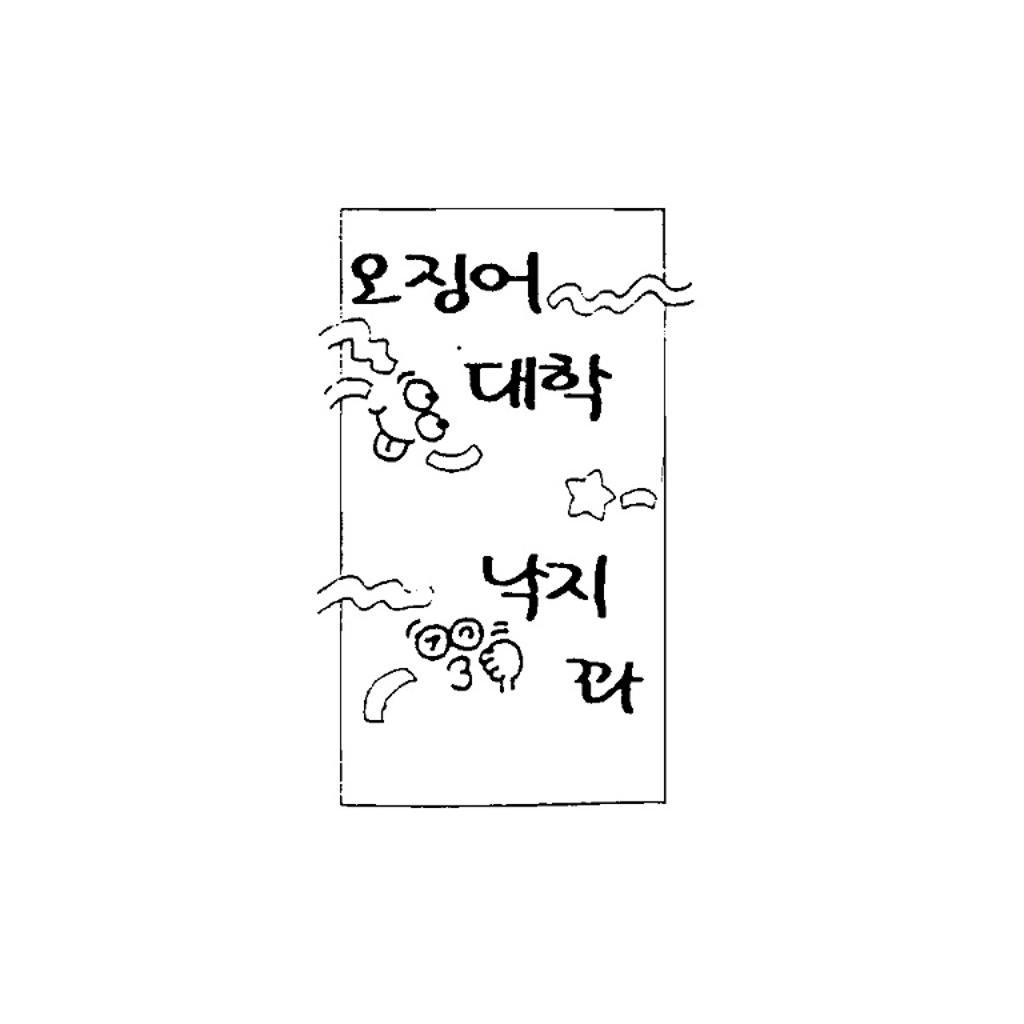 오징어
대학
낙지
꽈